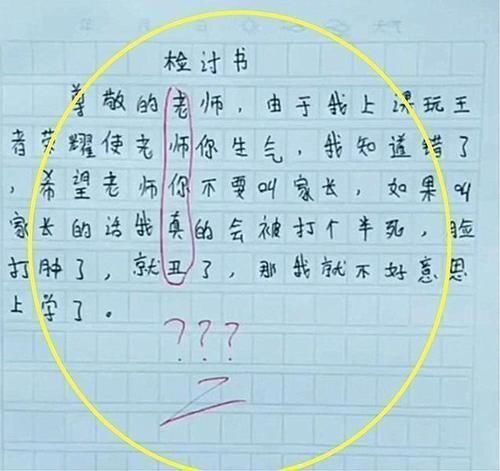 检讨书
尊敬的老师，由于我上课玩王
者荣耀使老师你生气，我知道错了
，希望老师你不要叫家长，如果叫
家长的话我真的会被打个半死，脸
打肿了，就丑了，那我就不好意思
上学了。
???